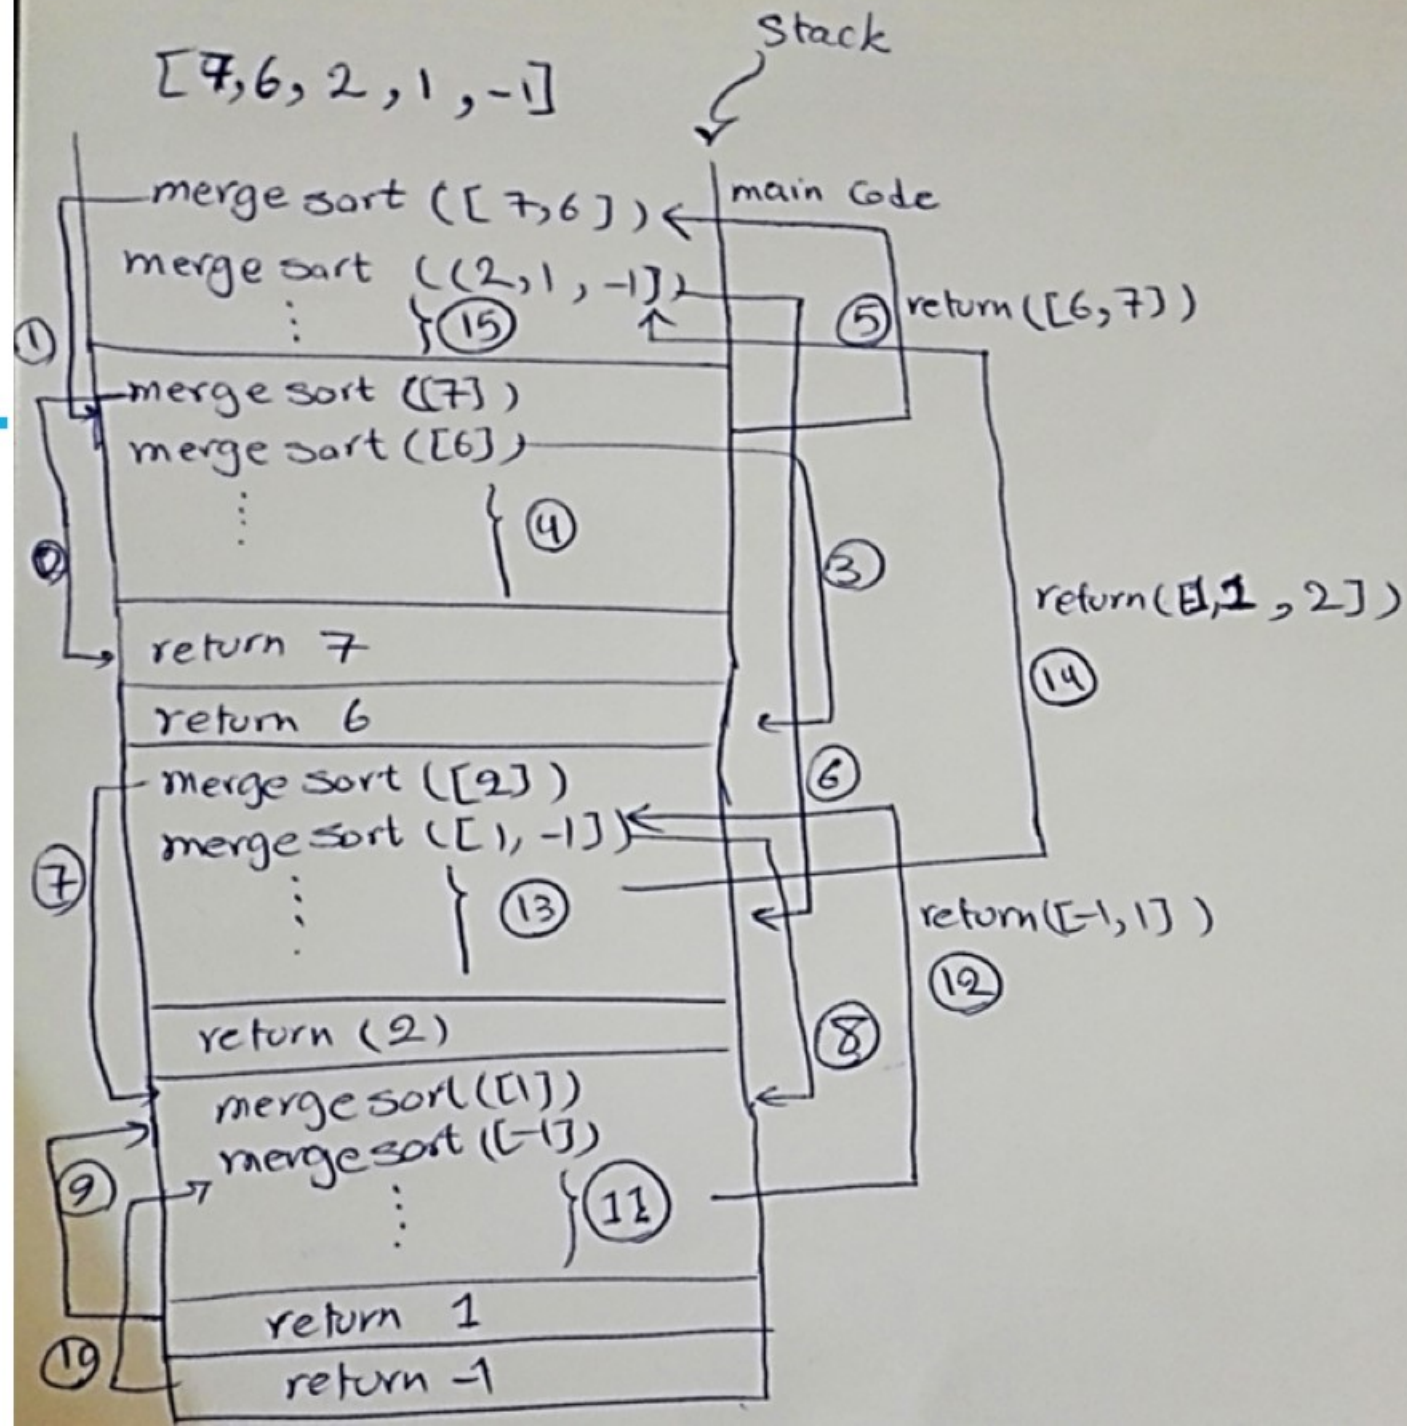 Stack
[7,6, 2, 1, -1]
merge sort ([ 7,6 ])
main Code
merge sart ((2,1, -1])
5
return([6,7])
15
1
merge sort ([7])
merge sart ([6])
4
3
return( , 2])
14
return 7
return 6
merge sort ([2])
6
merge sort ([1, -1])
7
13
return([-1,1])
12
return (2)
8
merge sort([1])
merge sort ([-1])
9
11
return 1
19
return -1